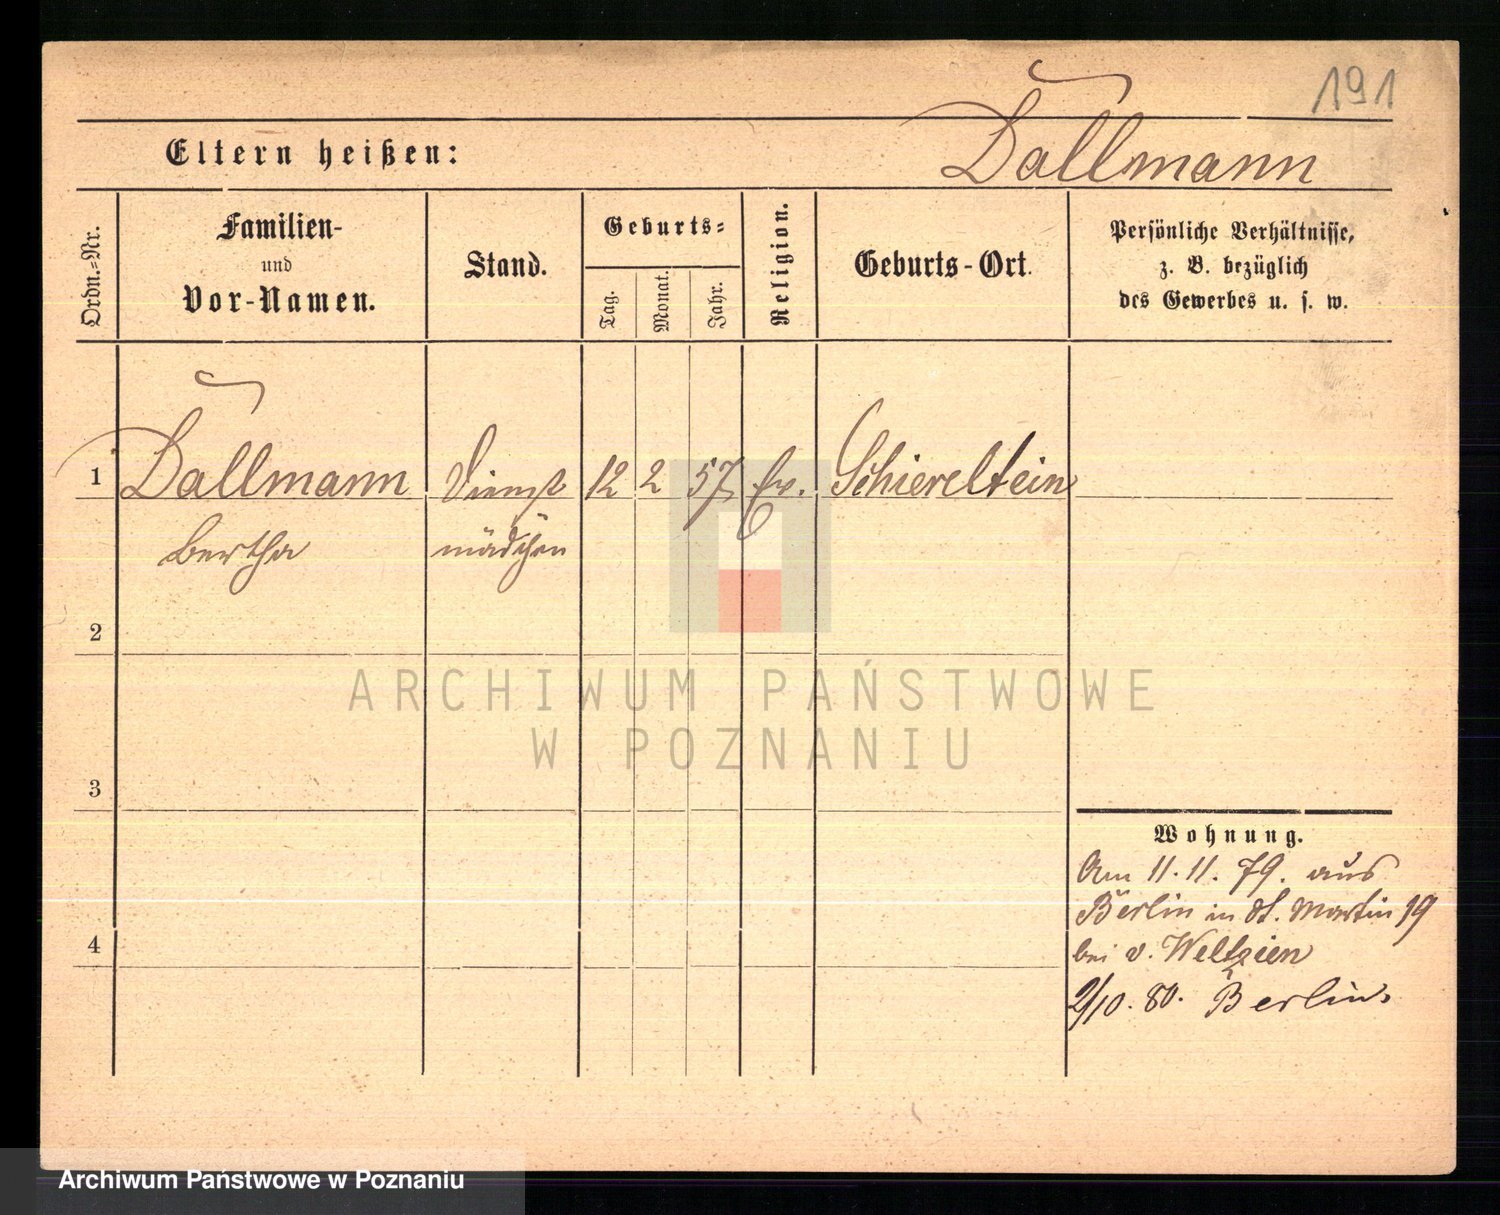 191
Dallmann
Eltern heißen:
Ordn.=Nr.
Familien-
und
Vor-Namen.
Stand.
Geburts=
Tag.
Monat.
Jahr.
Religion.
Geburts-Ort.
Persönliche Verhältnisse,
z. B. bezüglich
des Gewerbes u. s. w.
1 Dallmann Dienst 12 2 57 Ev. Schiereltein
Bertha mädchen
2
3
4
ARCHIWUM PAŃSTWOWE
W POZNANIU
Wohnung.
Am 11. 11. 79. aus
Berlin in St. Martin 19
bei v. Weltzien
2/10. 80. Berlin.
Archiwum Państwowe w Poznaniu